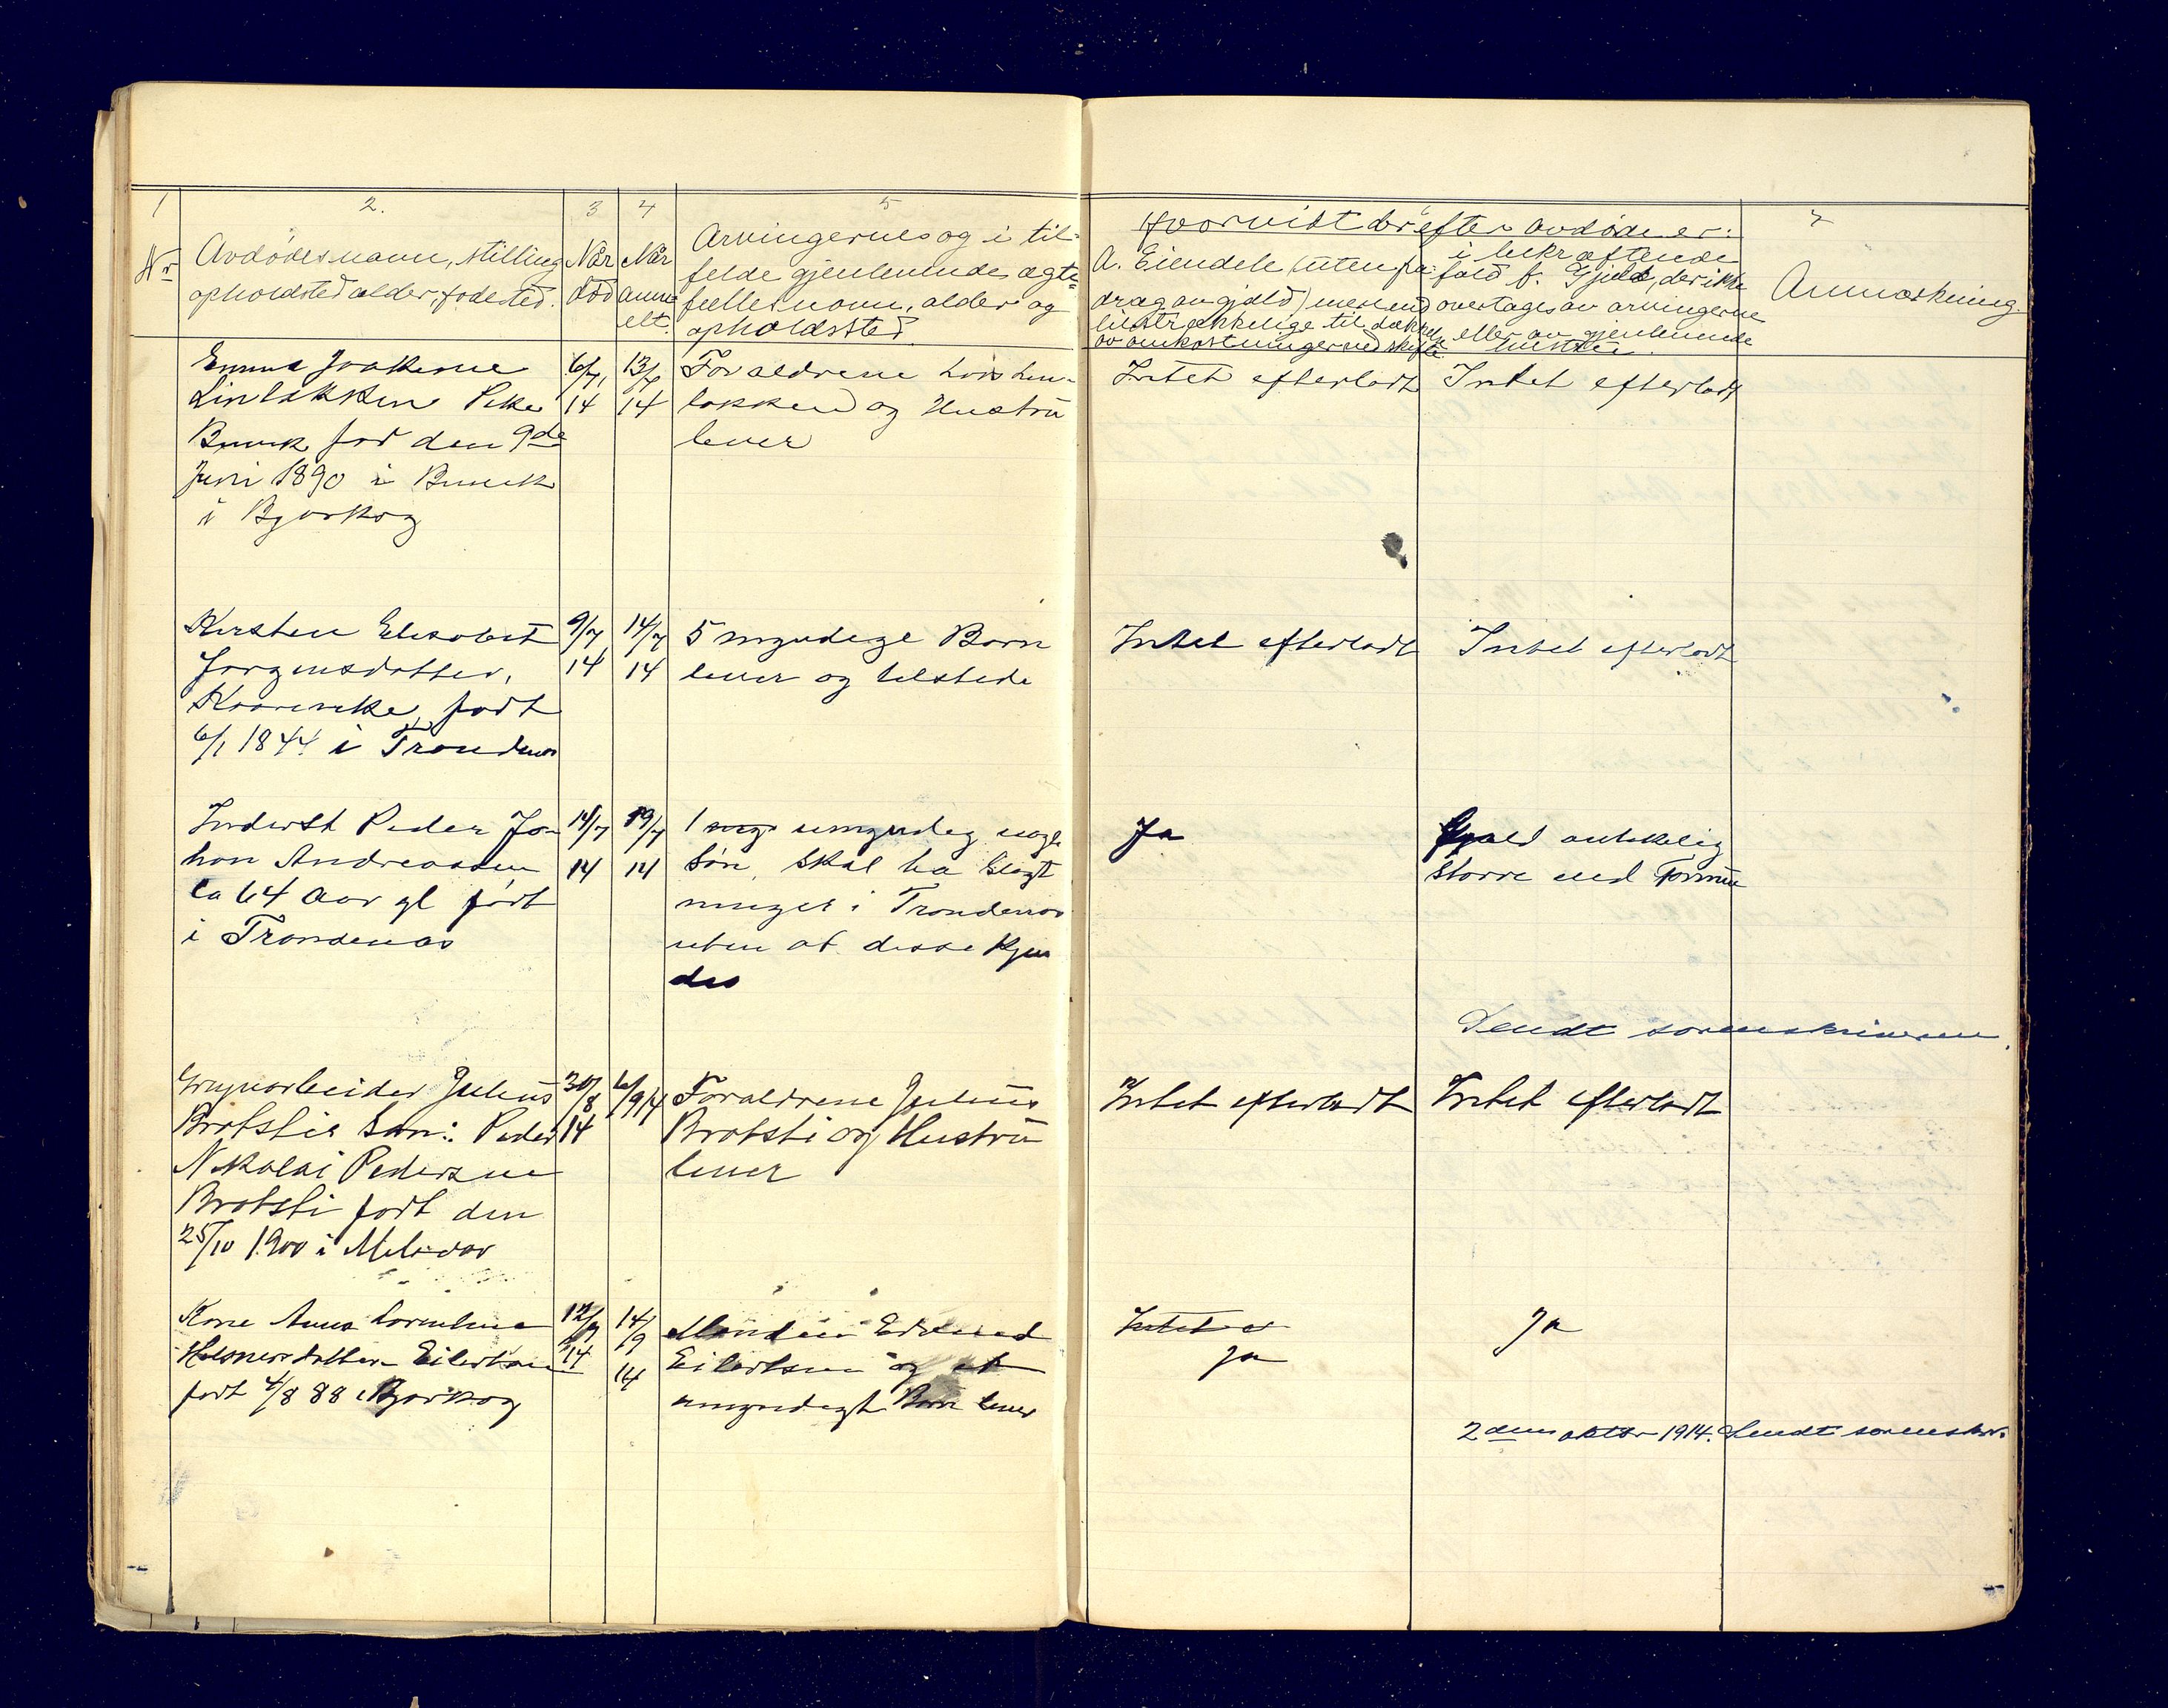 1
Nr
2.
Avdødes navn, stilling
opholdsted alder, fødested.
3
Når
død
4
Når
anm
elt.
5
Arvingernes og i til-
felde gjenlevende ægte-
fælles navn, alder og
opholdssted.
6
Hvorvidt der efter avdøde er:
A. Eiendele (uten fra-
drag av gjæld) mere end
tilstrekkelige til dækkelse
av omkostninger ved skifte
i bekræftende
fald B. Gjeld, der ikke
overtages av arvingerne
eller av gjenlevende
7
Anmærkning.
Emma Joakime
Linløkken Pike
Buvik, fød den 9de
Juni 1890 i Buvik
i Bjarkøy
6/7
14
13/7
14
Forældrene
løkken og Hustru
lever
Intet efterladt
Intet efterladt
Kirsten Elisabet
Jørgensdatter,
født
6/1 1844 i Trondenes
9/7
14
14/7
14
5 myndige Børn
lever og tilstede
Intet efterladt
Intet efterladt
Inderst Peder Jo-
han Andreassen
ca 64 Aar gl født
i Trondenæs
14/7
14
19/7
14
1 umyndig
Søn, skal ha Slægt
ninger i Trondenæs
uten at disse kjen
des
Ja
Gjæld antakelig
større end Formue
Sendt sorenskriveren.
Grubearbeider Julius
Brotstis Søn: Peder
Nikolai Pedersen
Brotsti født den
25/10 1900 i Meløvær
30/8
14
6/9 14
Forældrene Julius
Brotsti og Hustru
lever
Intet efterladt
Intet efterladt
Kone Anna
Eilertsen
født 4/8 88 i Bjarkøy
12/9
14
14/9
14
Manden Edvard
Eilertsen og et
umyndigt Barn lever
Intet
Ja
Ja
2den oktbr 1914. Sendt sorenskr.